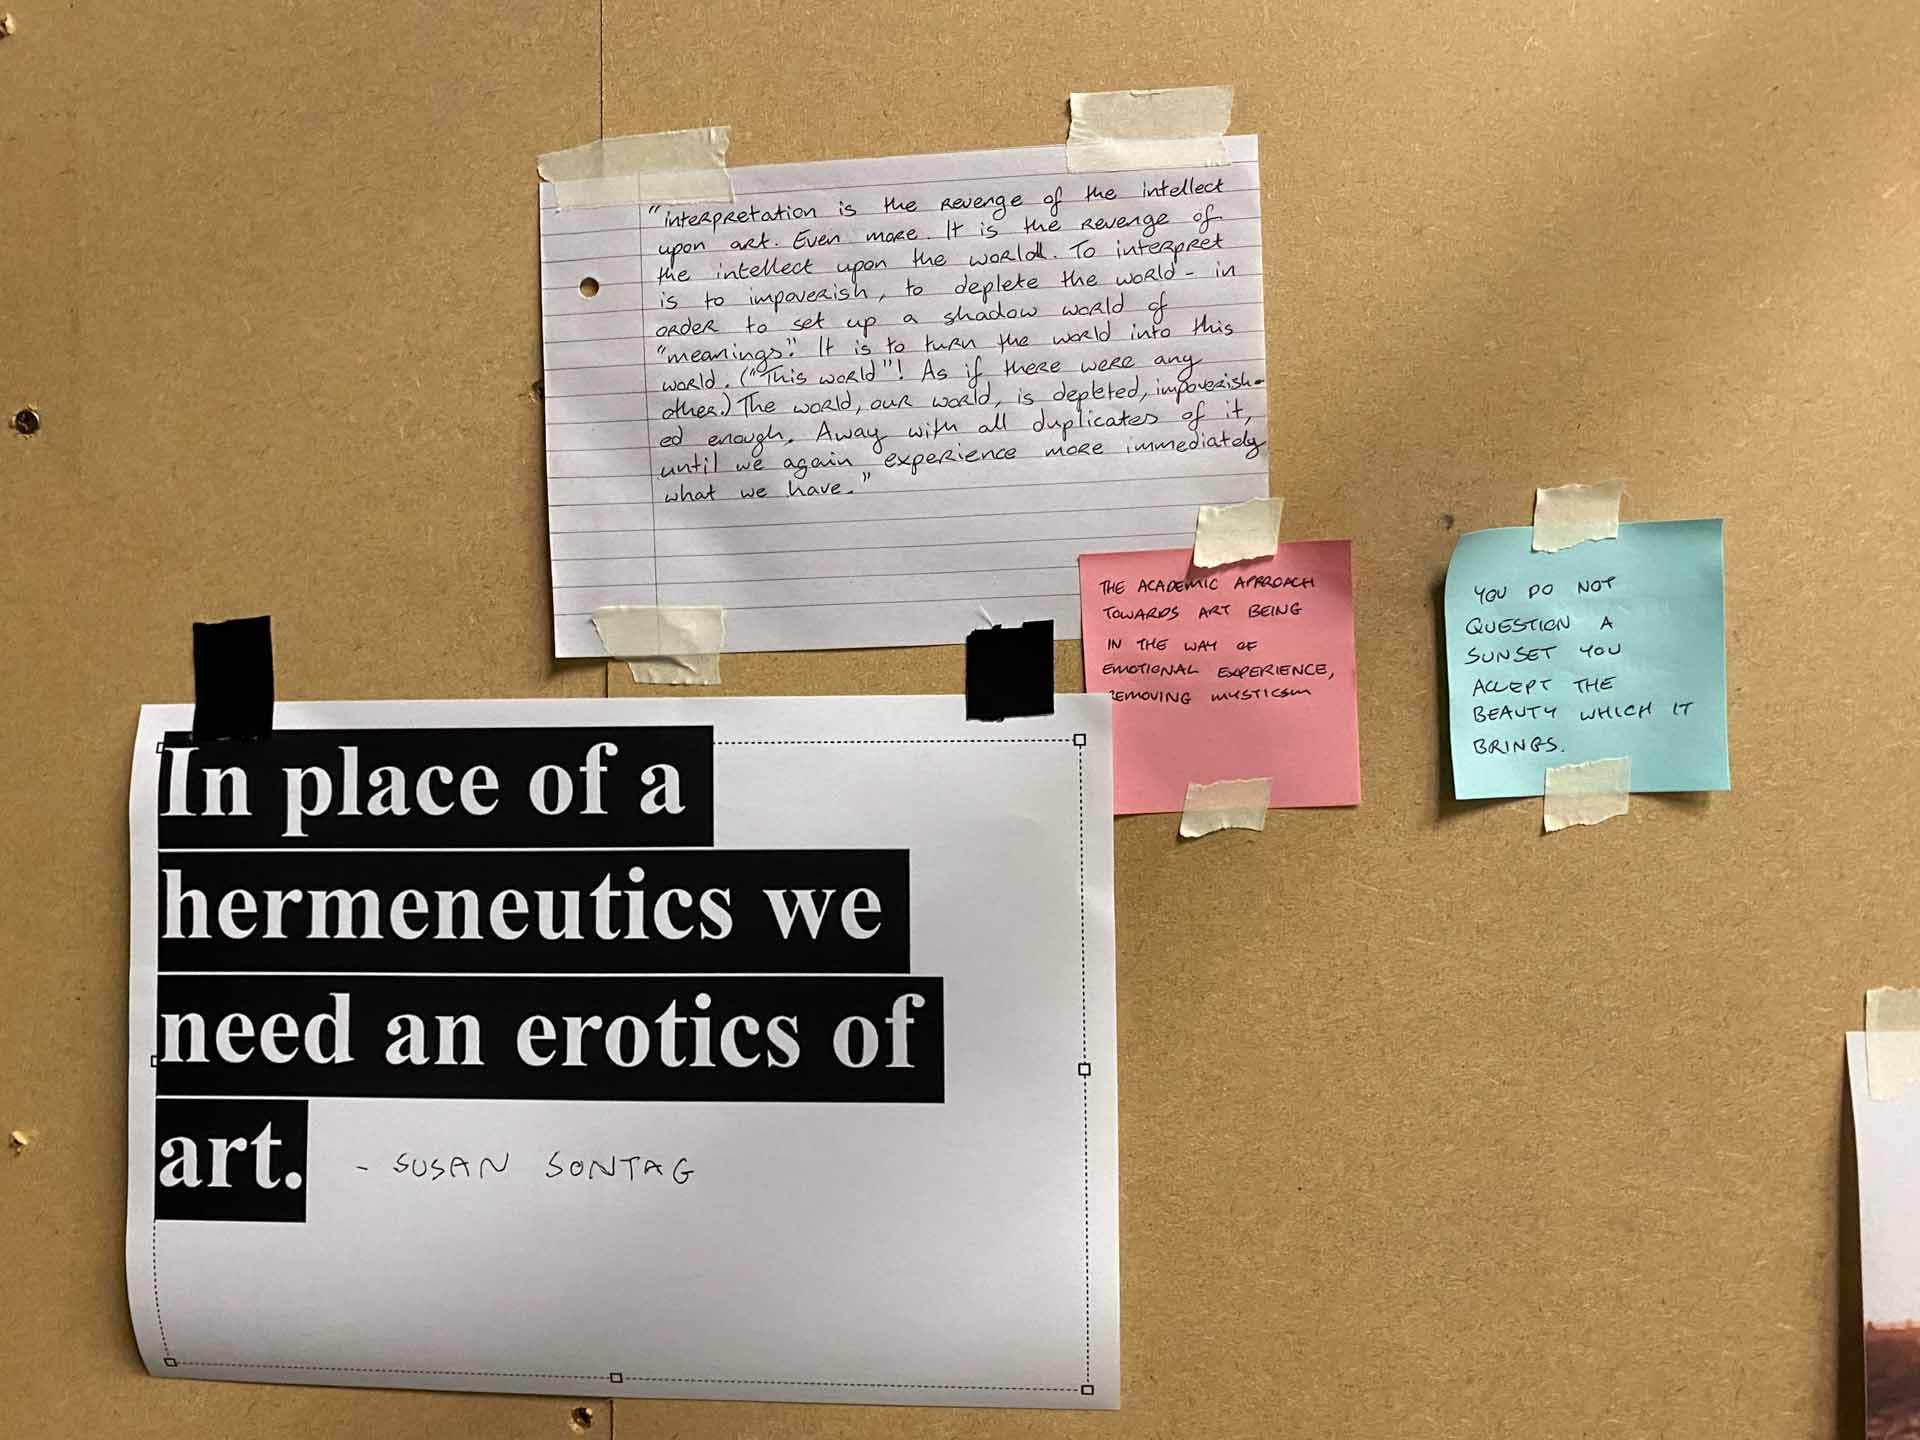 "interpretation is the revenge of the intellect
upon art. Even more. It is the revenge of
the intellect upon the world. To interpret
is to impoverish, to deplete the world - in
order to set up a shadow world of
"meanings." It is to turn the world into this
world. ("This world"! As if there were any
other.) The world, our world, is depleted, impoverish-
ed enough. Away with all duplicates of it,
until we again experience more immediately
what we have."
THE ACADEMIC APPROACH
TOWARDS ART BEING
IN THE WAY OF
EMOTIONAL EXPERIENCE,
REMOVING MYSTICSM
YOU DO NOT
QUESTION A
SUNSET YOU
ACCEPT THE
BEAUTY WHICH IT
BRINGS.
In place of a
hermeneutics we
need an erotics of
art. - SUSAN SONTAG